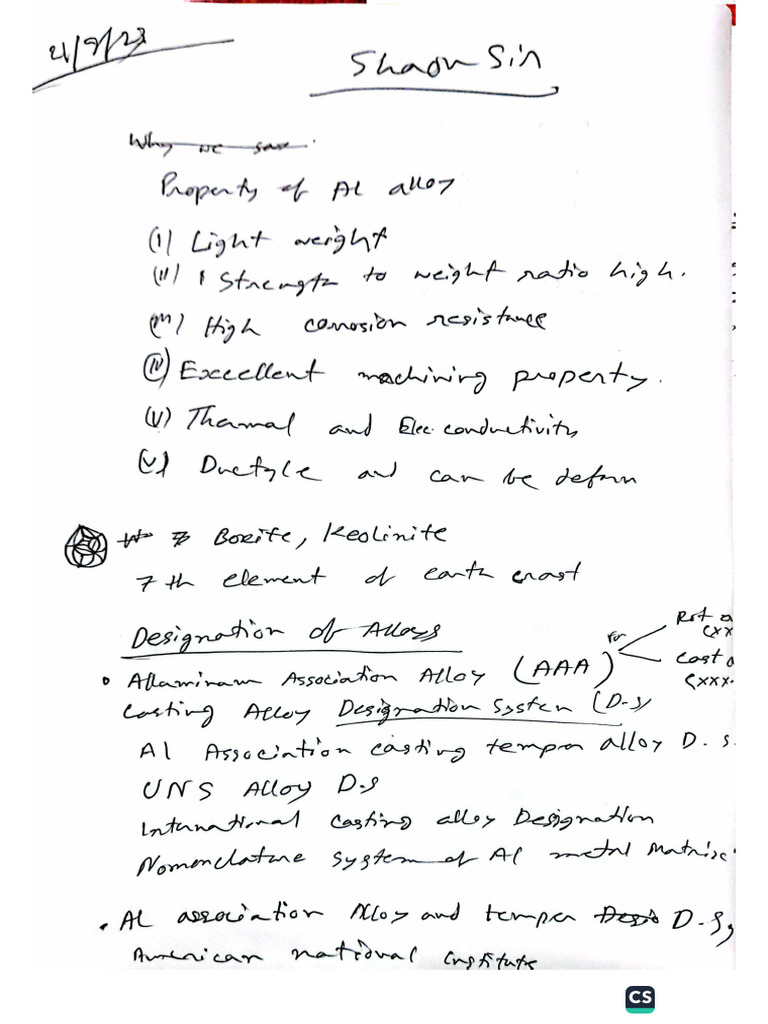 21/9/23
Shaon Sir
Why we save
Property of Al alloy
(I) Light weight
(II) Strength to weight ratio high.
(III) High corrosion resistance
(IV) Excellent machining property.
(V) Thermal and Elec. conductivity
(V) Ductyle and can be deform
Boxite, Keolinite
7th element of earth crast
Designation of Alloys
For
Rot a
(xx
Cast a
(xxx.
• Alluminam Association Alloy (AAA)
Casting Alloy Designation System (D-S)
Al Association casting temper alloy D.S.
UNS Alloy D-S
International casting alloy Designation
Nomenclature system of Al metal Matrix
• Al association Alloy and temper Desi D.S,
American national institute
CS